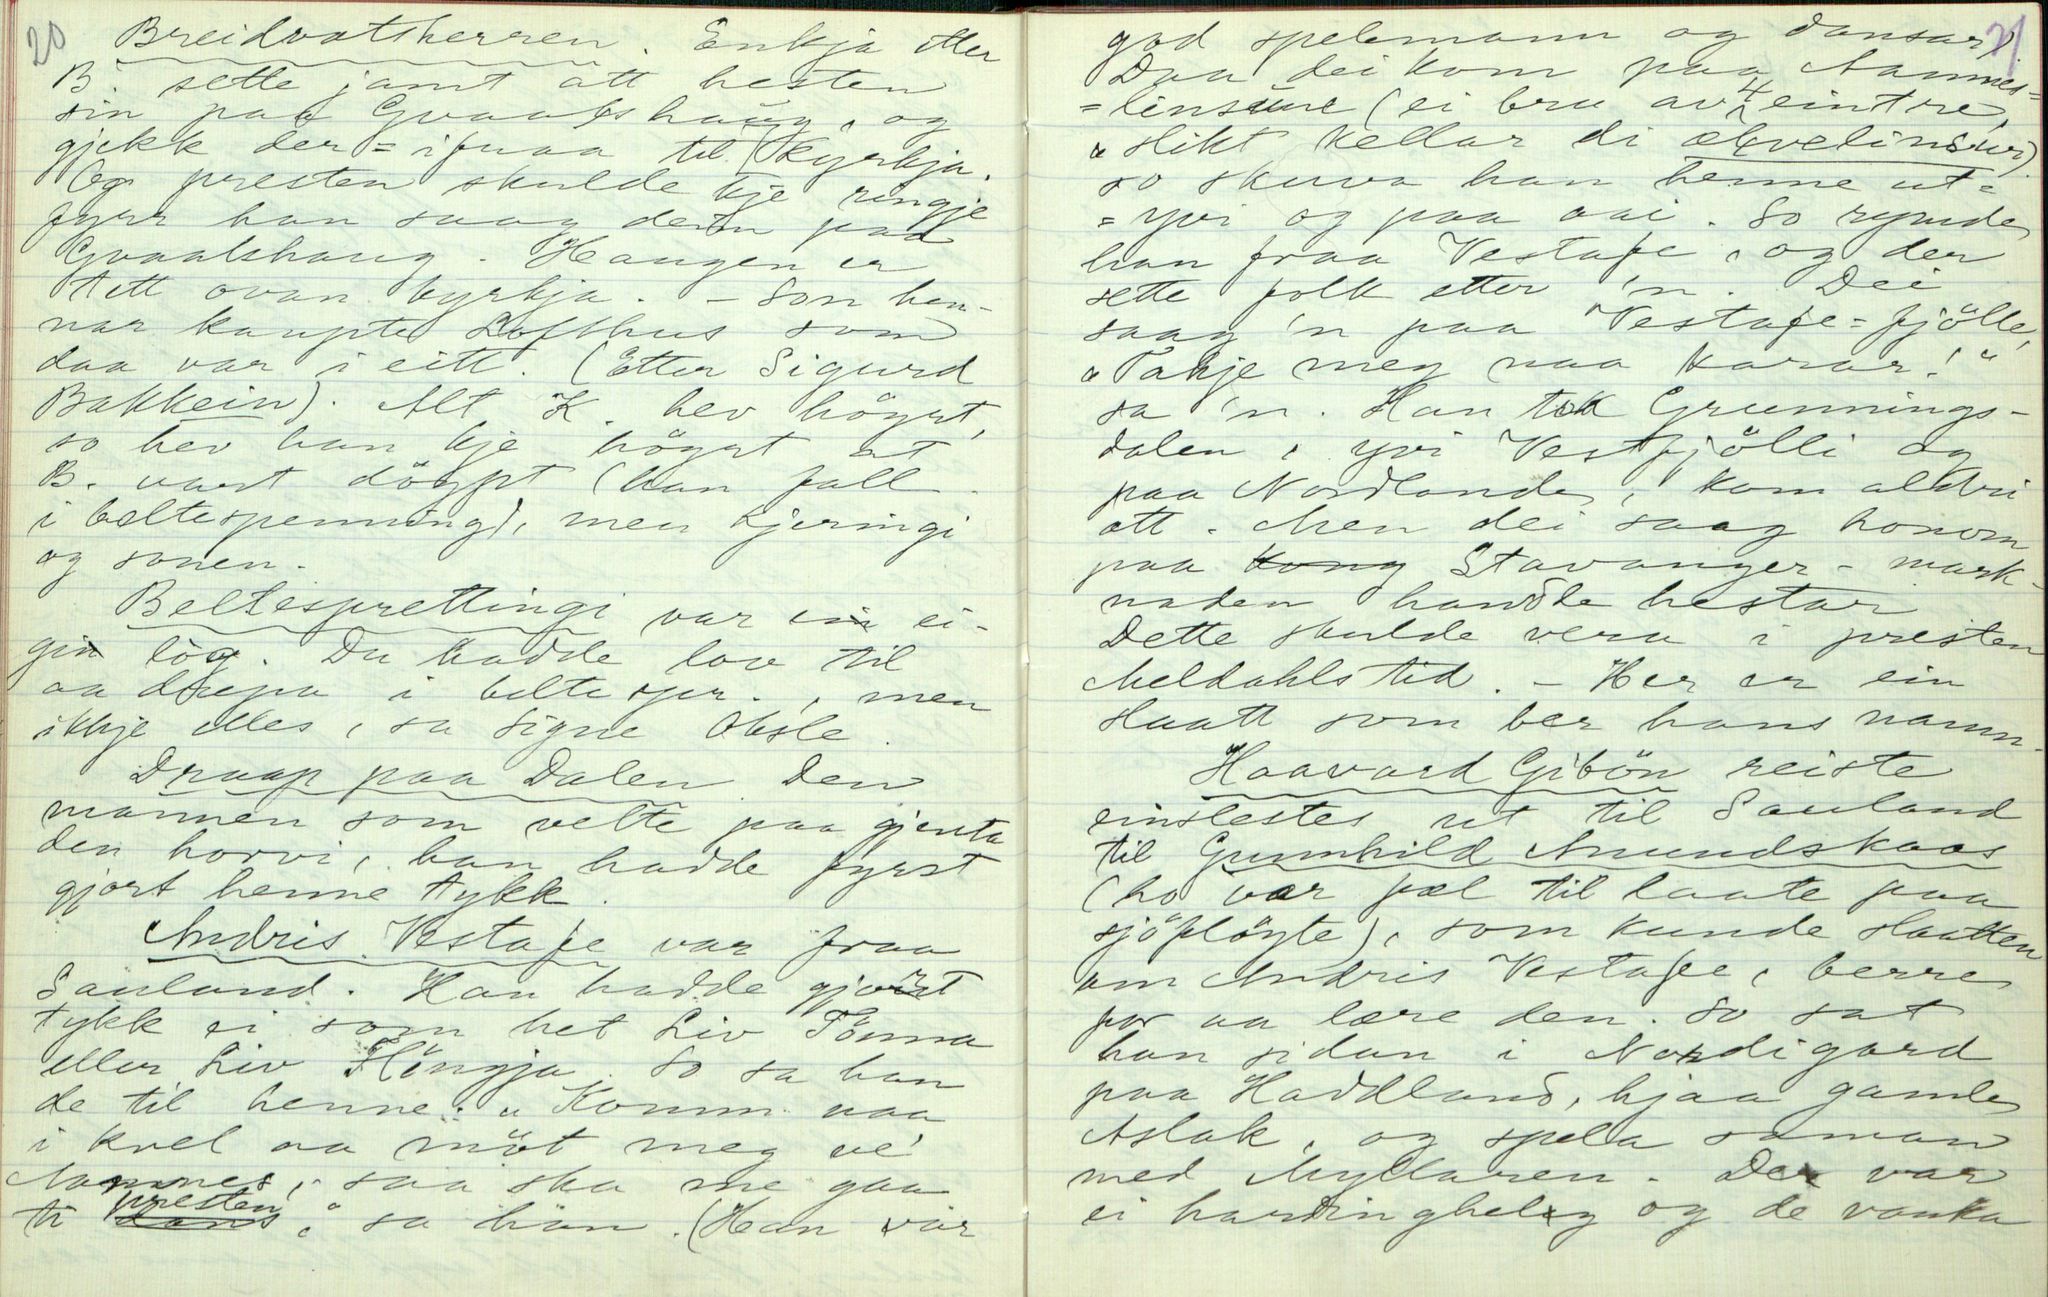 20
Breidvatsherren. Enkja etter
B. sette jamt att hesten
sin paa Gvaalshaug, og
gjekk der = ifraa til kyrkja.
Og presten skulde kje ringje
fyrr han saag dem paa
Gvaalshaug. Haugen er
tett ovan kyrkja. – Son hen-
nar kaupte Lofthus som
daa var i eitt. (Etter Sigurd
Bakkein). Alt K. hev höyrt,
so hev han kje höyrt at
B. vart döypt (han fall
i beltespenning), men kjeringi
og sonen.
Beltesprettingi var ei-
gi lög. Du hadde lov til
aa drepa i beltespr., men
ikkje elles, sa Signe Oksle.
Draap paa Dalen. Den
mannen som velte paa gjenta
den horvi, han hadde fyrst
gjort henne tykk.
Andris Vestafe var fraa
Sauland. Han hadde gjort
tykk ei som het Liv Tönna
eller Liv Flöngja. So sa han
de til henne: "Komm naa
i kvel aa möt meg ve'
Nammes, saa ska me gaa
ti presten," sa han. (Han var
21
god spelemann og dansar).
Daa dei kom paa Nammes-
= linsune (ei bru av 4 eintre,
slikt kellar di elvelinsur)
so skuva han henne ut =
= yvi og paa aai. So rymde
han fraa Vestafe, og der
sette folk etter 'n. Dei
saag 'n paa Vestafe = fjölle,
"Takje meg naa karar!"
sa 'n. Han tok Grunnings-
dalen, yvi Vestfjölli og
paa Nordlande, kom aldri
att. Men dei saag honom
paa Kong Stavanger – mark-
naden handle hestar
Dette skulde vera i presten
Meldahls tid. – Her er ein
slaatt som ber hans namn.
Haavard Gibön reiste
einslestes ut til Sauland
til Gunnhild Anundskaas
(ho var fæl til laate paa
sjöflöyte), som kunde slaatten
um Andris Vestafe, berre
for aa lære den. So sat
han sidan i Nordigard
paa Haddland, hjaa gamle
Aslak, og spela saman
med Myllaren. De var
ei hardinghelg og de vanka